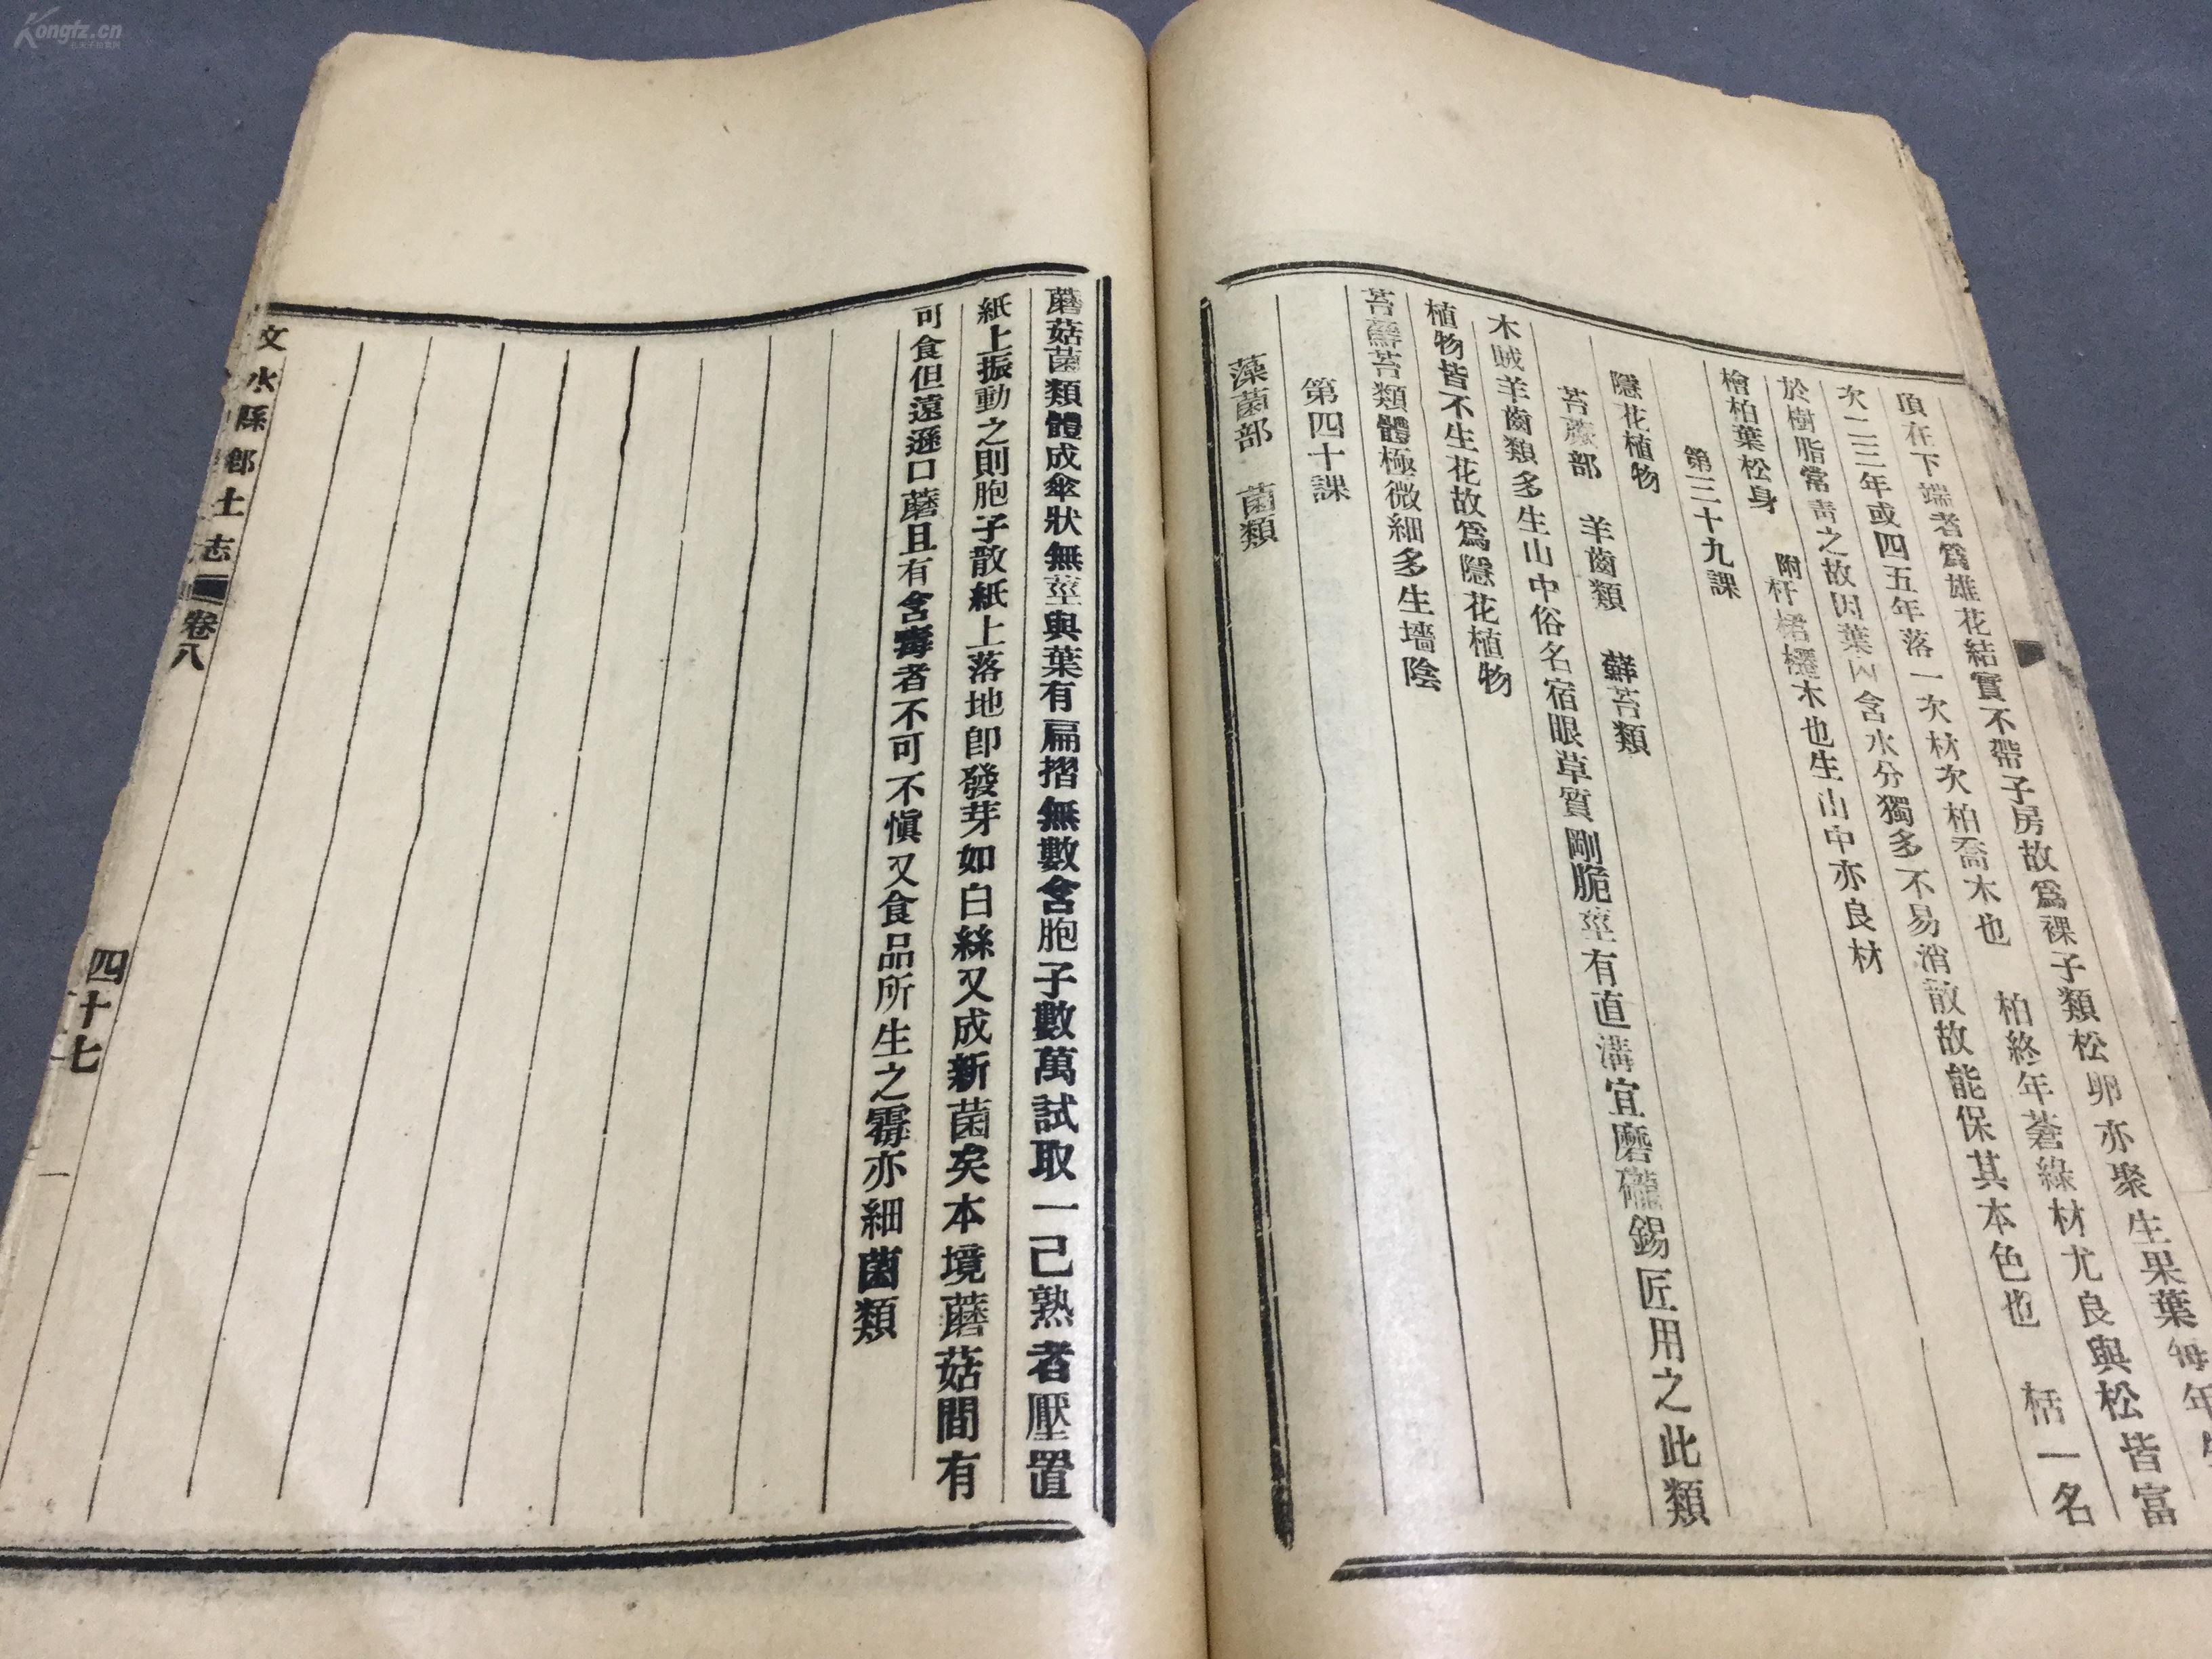 項在下端者爲雄花結實不帶子房故爲裸子類松卵亦聚生果葉每年
次二三年或四五年落一次材次柏喬木也 柏終年蒼綠材尤良與松皆富
於樹脂常靑之故因葉內含水分獨多不易消散故能保其本色也 栝一名
檜柏葉松身 附杆木也生山中亦良材
第三十九課
隱花植物
苔蘚部 羊齒類 蘚苔類
木賊羊齒類多生山中俗名宿眼草質剛脆莖有直溝宜磨礲錫匠用之此類
植物皆不生花故爲隱花植物
苔蘚苔類體極微細多生墻陰
第四十課
藻菌部 菌類
蘑菇菌類體成傘狀無莖與葉有扁摺無數含胞子數萬試取一己熟者壓置
紙上振動之則胞子散紙上落地卽發芽如白絲又成新菌矣本境蘑菇間有
可食但遠遜口蘑且有含毒者不可不愼又食品所生之霉亦細菌類
文水縣鄉土志 卷八 四十七
Kongfz.cn